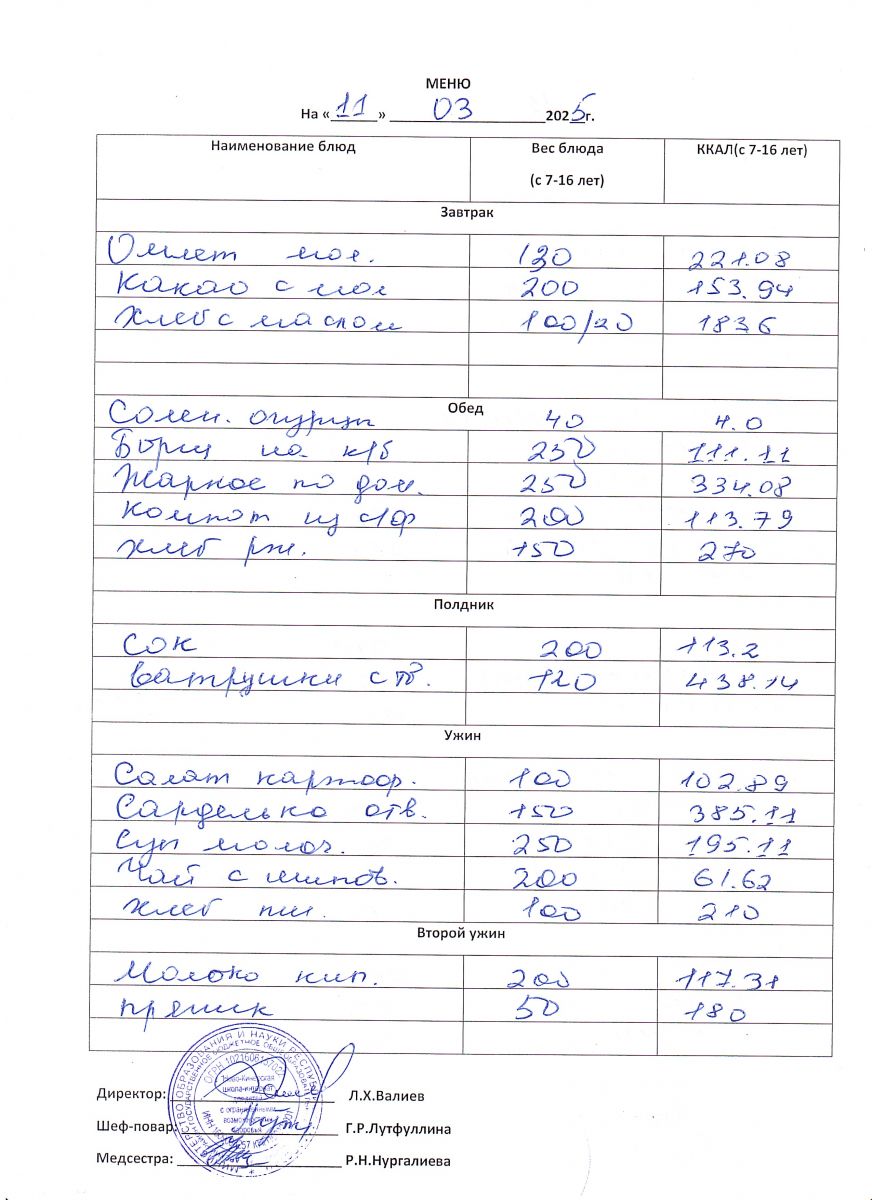 МЕНЮ
На «11» 03 2025г.
Наименование блюд Вес блюда (с 7-16 лет) ККАЛ(с 7-16 лет)
Завтрак
Омлет мол. 130 221.08
Какао с мол 200 153.94
Хлеб с маслом 100/20 1836
Обед
Солен. огурцы 40 4.0
Борщ на к/б 250 111.11
Жаркое по дом. 250 334.08
Компот из с/ф 200 113.79
Хлеб рж. 150 270
Полдник
Сок 200 113.2
Ватрушки с тв. 120 438.14
Ужин
Салат картоф. 100 102.89
Сарделька отв. 150 385.11
Суп молоч. 250 195.11
Чай с шипов. 200 61.62
Хлеб пш. 100 210
Второй ужин
Молоко кип. 200 117.31
пряник 50 180
Директор: Л.Х.Валиев
Шеф-повар: Г.Р.Лутфуллина
Медсестра: Р.Н.Нургалиева